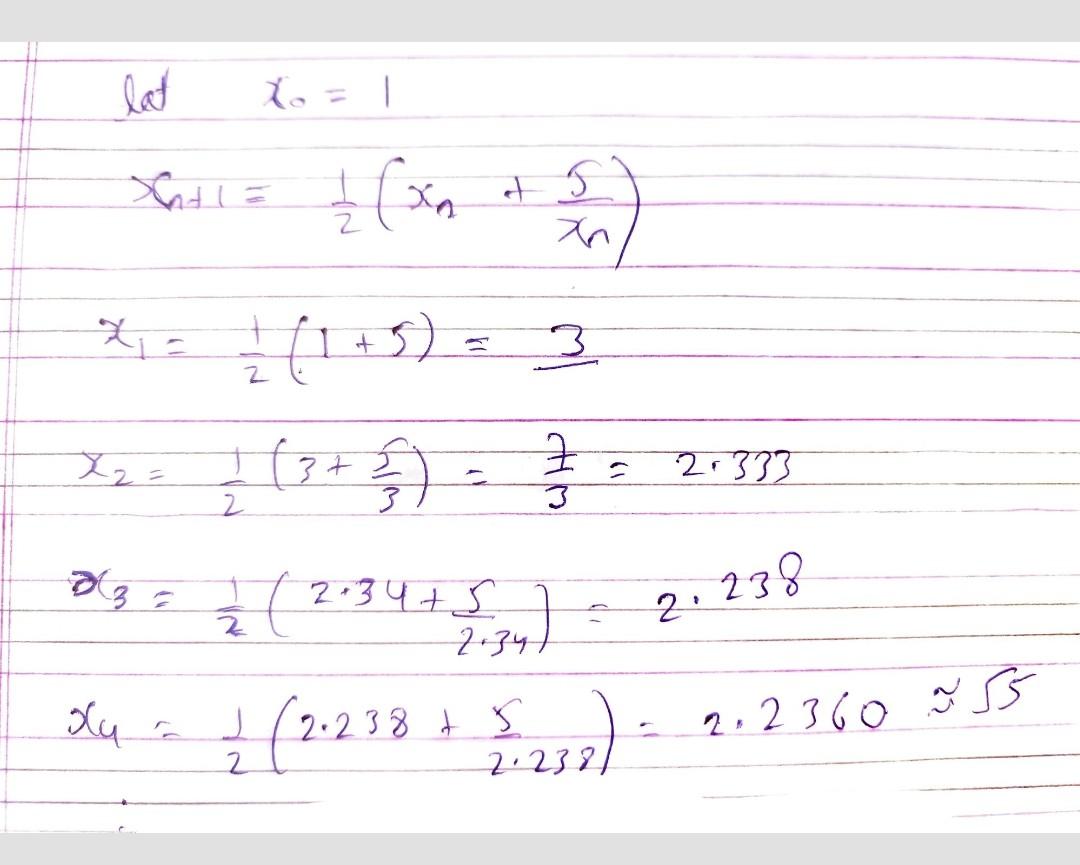 let x₀ = 1
xₙ₊₁ = 1/2 (xₙ + 5/xₙ)
x₁ = 1/2 (1 + 5) = 3
x₂ = 1/2 (3 + 5/3) = 7/3 = 2.333
x₃ = 1/2 (2.34 + 5/2.34) = 2.238
x₄ = 1/2 (2.238 + 5/2.238) = 2.2360 ≈ √5